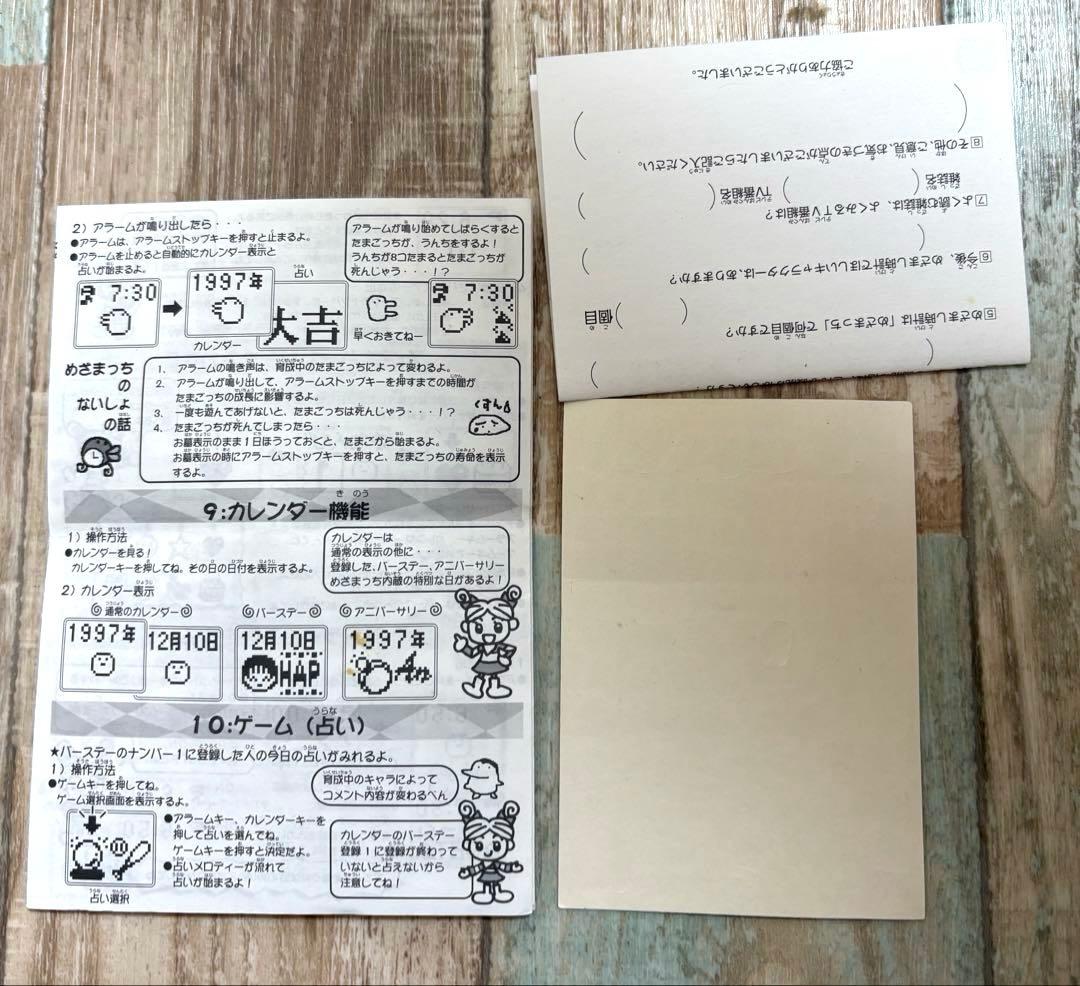 2）アラームが鳴り出したら・・・
●アラームは、アラームストップキーを押すと止まるよ。
●アラームを止めると自動的にカレンダー表示と
占いが始まるよ。
アラームが鳴り始めてしばらくすると
たまごっちが、うんちをするよ！
うんちが8コたまるとたまごっちが
死んじゃう・・・！？
7:30
1997年
カレンダー
占い
大吉
早くおきてねー
7:30
めざまっち
の
ないしょ
の話
1. アラームの鳴き声は、育成中のたまごっちによって変わるよ。
2. アラームが鳴り出して、アラームストップキーを押すまでの時間が
たまごっちの成長に影響するよ。
3. 一度も遊んであげないと、たまごっちは死んじゃう・・・！？
4. たまごっちが死んでしまったら・・・
お墓表示のまま1日ほうっておくと、たまごから始まるよ。
お墓表示の時にアラームストップキーを押すと、たまごっちの寿命を表示
するよ。
くすん
9:カレンダー機能
1）操作方法
●カレンダーを見る！
カレンダーキーを押してね。その日の日付を表示するよ。
カレンダーは
通常の表示の他に・・・
登録した、バースデー、アニバーサリー
めざまっち内蔵の特別な日があるよ！
2）カレンダー表示
通常のカレンダー
バースデー
アニバーサリー
1997年
12月10日
12月10日
HAP
1997年
An
10:ゲーム（占い）
★バースデーのナンバー1に登録した人の今日の占いがみれるよ。
1）操作方法
●ゲームキーを押してね。
ゲーム選択画面を表示するよ。
育成中のキャラによって
コメント内容が変わるべん
占い選択
●アラームキー、カレンダーキーを
押して占いを選んでね。
ゲームキーを押すと決定だよ。
●占いメロディーが流れて
占いが始まるよ！
カレンダーのバースデー
登録1に登録が終わって
いないと占えないから
注意してね！
5 めざまし時計は「めざまっち」で何個目ですか？
（ ）個目
6 今後、めざまし時計でほしいキャラクターは、ありますか？
7 よく読む雑誌は、よくみるTV番組は？
雑誌名（ ）TV番組名（ ）
8 その他、ご意見、お気づきの点がございましたらご記入ください。
（ ）
ご協力ありがとうございました。